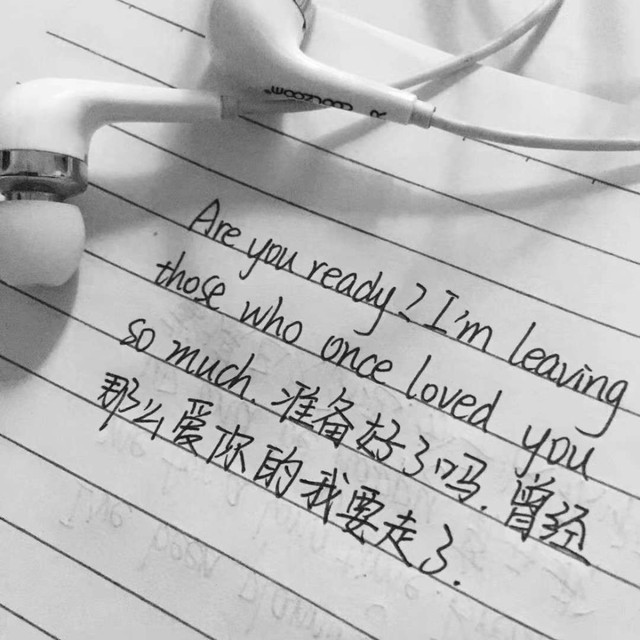 Are you ready? I'm leaving
those who once loved you
so much. 准备好了吗.曾经
那么爱你的我要走了.